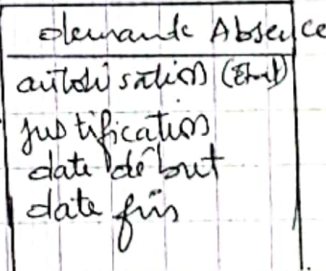 demande Absence
autorisation (Etat)
justification
date début
date fin